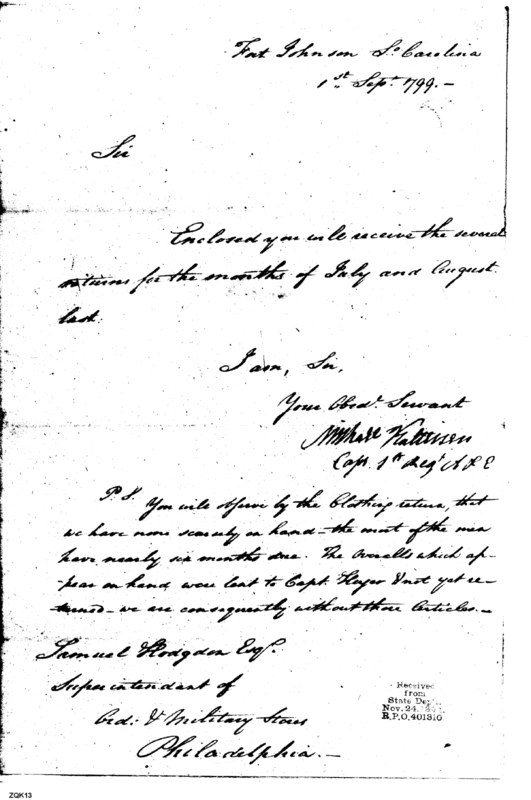 Fort Johnson So. Carolina
1st. Sept. 1799.-
Sir
Enclosed you will receive the several
returns for the months of July and August
last.
I am, Sir,
Your Obedt. Servant
Capt. 1st Regt A & E
P.S. You will observe by the Clothing return, that
we have none scarcely on hand - the most of the men
have nearly six months due. The Overalls which ap-
pear on hand were lent to Capt. & not yet re-
turned - we are consequently without those Articles.-
Samuel Hodgdon Esqr.
Superintendant of
Ord: & Military Stores
Philadelphia.-
Received
from
State Dep't.
Nov. 24,
R.P.O. 401310
ZQK13